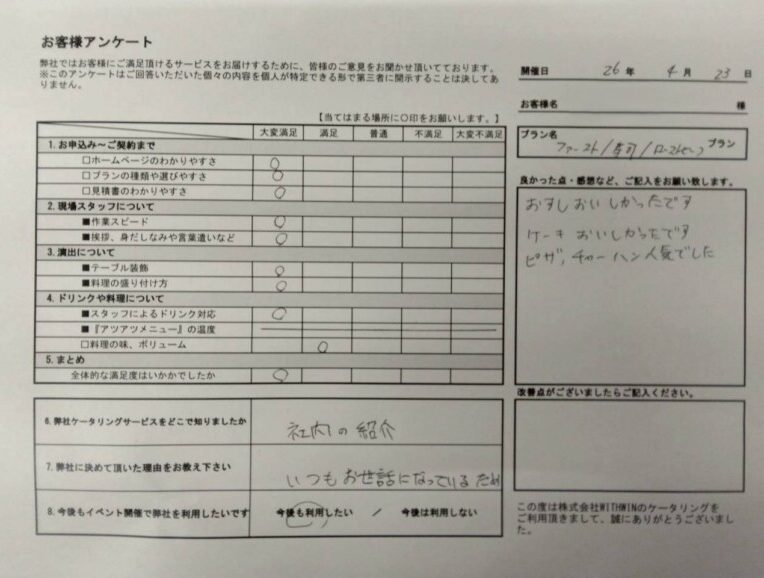 お客様アンケート
弊社ではお客様にご満足頂けるサービスをお届けするために、皆様のご意見をお聞かせ頂いてております。
※このアンケートはご回答いただいた個々の内容を個人が特定できる形で第三者に開示することは決してあ
りません。
開催日 26 年 4 月 23 日
お客様名 様
【当てはまる場所に○印をお願いします。】
プラン名
ファースト/寿司/ローストビーフ プラン
大変満足 満足 普通 不満足 大変不満足
1. お申込み～ご契約まで
□ホームページのわかりやすさ ○
□プランの種類や選びやすさ ○
□見積書のわかりやすさ ○
2. 現場スタッフについて
■作業スピード ○
■挨拶、身だしなみや言葉遣いなど ○
3. 演出について
■テーブル装飾 ○
■料理の盛り付け方 ○
4. ドリンクや料理について
■スタッフによるドリンク対応 ○
■『アツアツメニュー』の温度
□料理の味、ボリューム ○
5. まとめ
全体的な満足度はいかかでしたか ○
良かった点・感想など、ご記入をお願い致します。
おすしおいしかったです
ケーキ おいしかったです
ピザ, チャーハン人気でした
改善点がございましたらご記入ください。
6. 弊社ケータリングサービスをどこで知りましたか
社内の紹介
7. 弊社に決めて頂いた理由をお教え下さい
いつもお世話になっているため
8. 今後もイベント開催で弊社を利用したいです
今後も利用したい / 今後は利用しない
この度は株式会社WITHWINのケータリングを
ご利用頂きまして、誠にありがとうございまし
た。